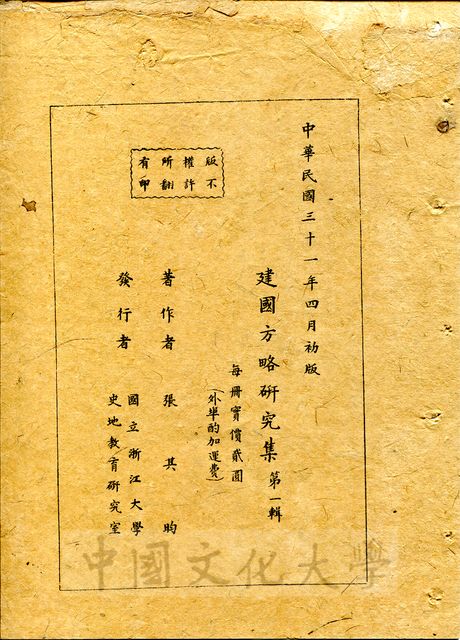 中華民國三十一年四月初版
建國方略研究集 第一輯
每冊實價貳圓
(外埠酌加運費)
著作者 張其昀
發行者 國立浙江大學
史地教育研究室
版權所有
不許翻印
中國文化大學